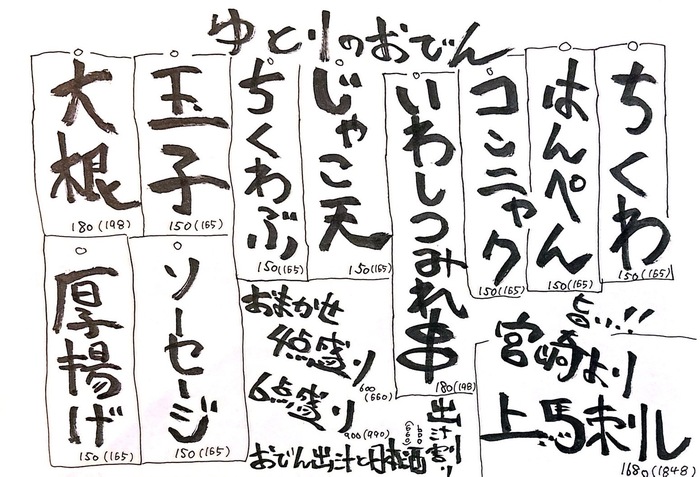 ゆとりのおでん
ちくわ
150(165)
はんぺん
150(165)
コンニャク
150(165)
いわしつみれ串
180(198)
じゃこ天
150(165)
ちくわぶ
150(165)
玉子
150(165)
大根
180(198)
旨い!!
宮崎より
上馬刺し
1680(1848)
おまかせ
4点盛り
600
(660)
6点盛り
900(990)
出汁割り
600
おでん出汁と日本酒
ソーセージ
150(165)
厚揚げ
150(165)